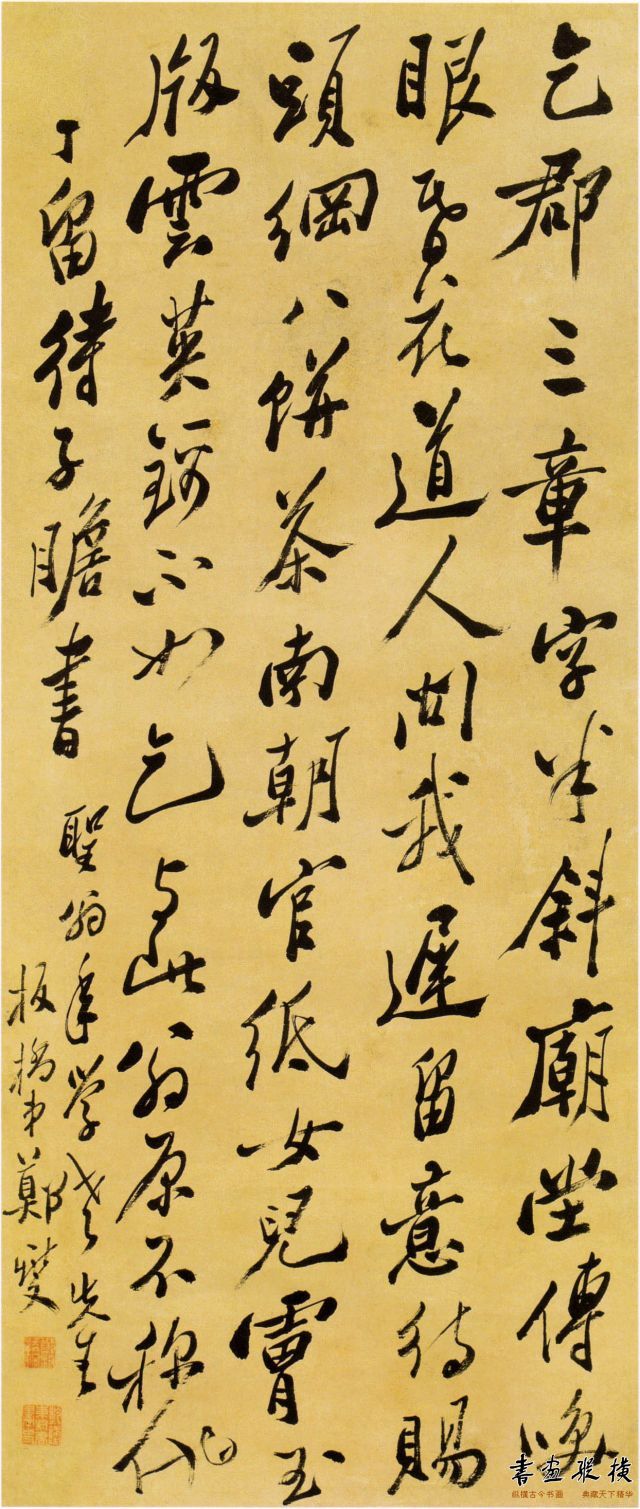 乞郡三章字半斜廟堂傳咲
眼昏花道人問我遲留意待賜
頭綱八餅茶南朝官紙女兒膚玉
版雲英不如乞与此翁原不稱他
丁留待子瞻書
聖翁年學老先生
板橋弟鄭燮
書畫縱橫
纵横古今书画 典藏天下精华